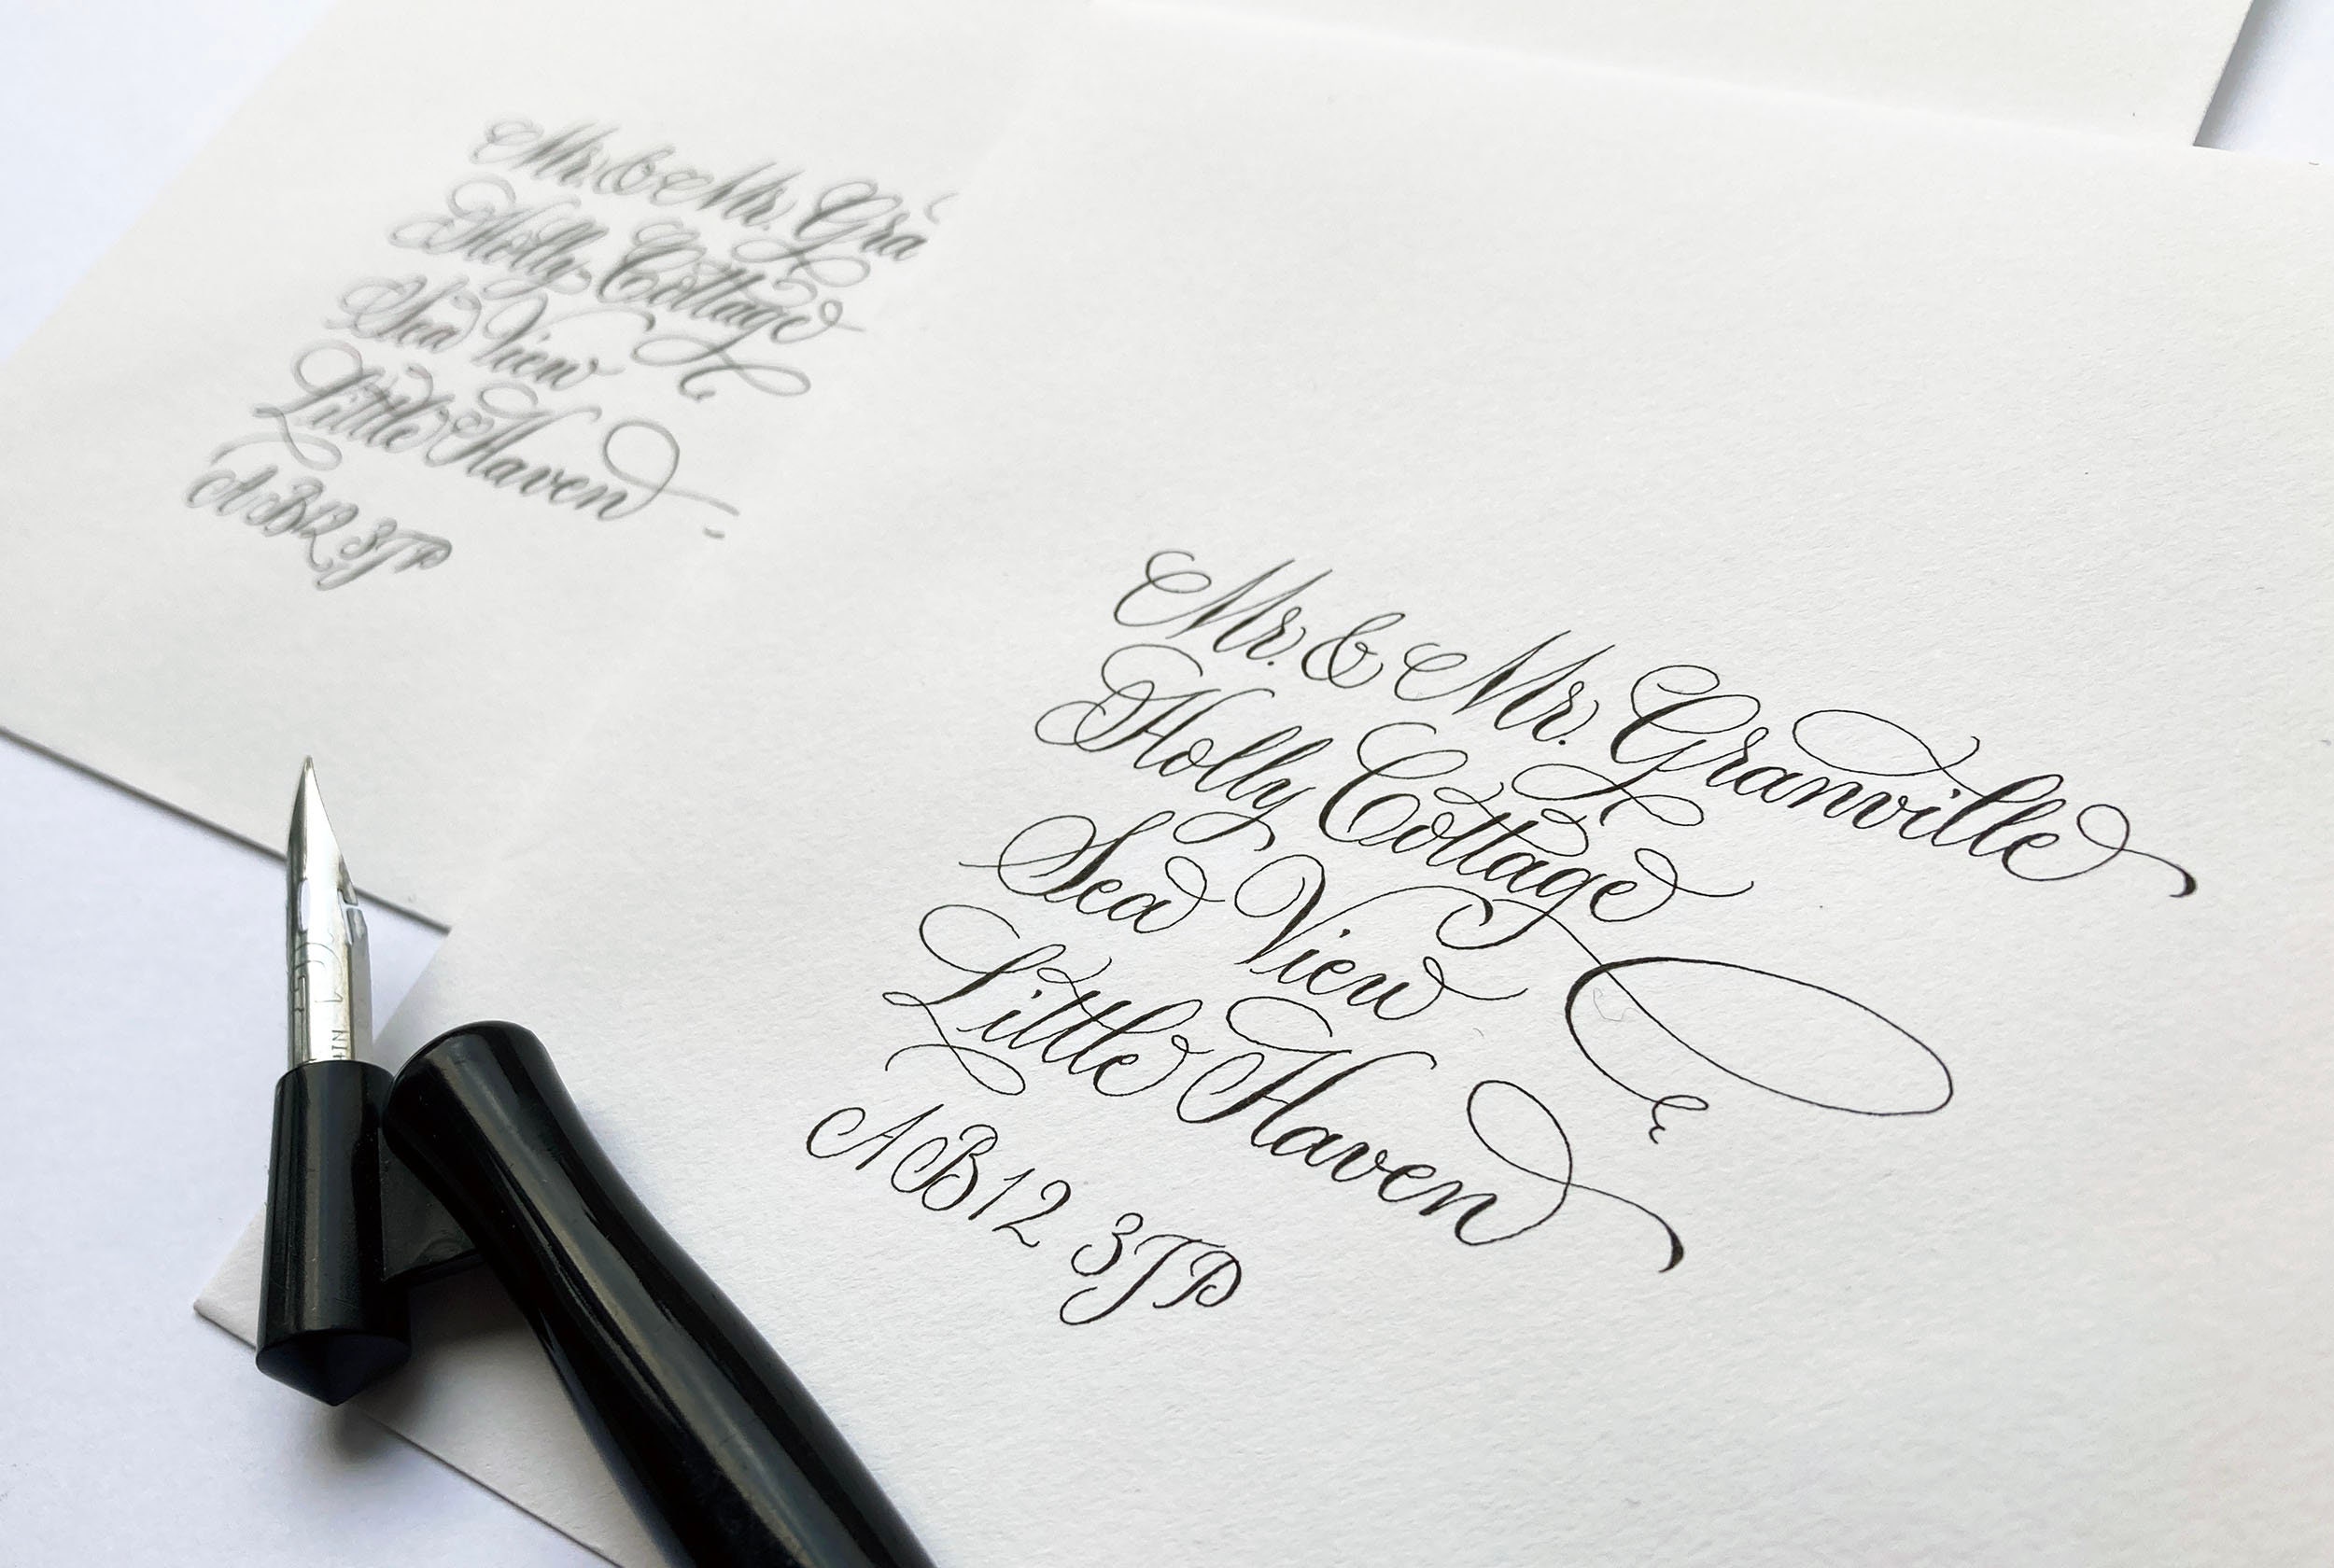 Mr. & Mr. Gra
Holly Cottage
Sea View
Little Haven
AB12 3JP
Mr. & Mr. Granville
Holly Cottage
Sea View
Little Haven
AB12 3JP